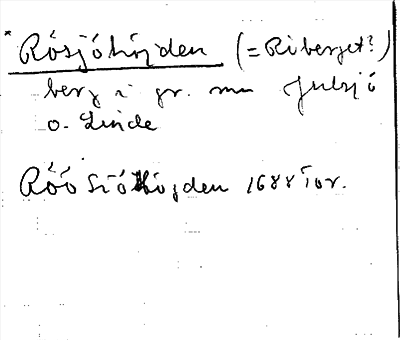 * Rösjöhöjden (= Riberget?)
berg i gr. mn Gulsjö
o. Linde
Röö Siöhöjden 1688 Tor.